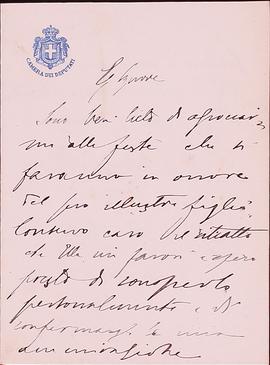 CAMERA DEI DEPUTATI
Eg Signore
Sono ben lieto di associar
mi alle feste che si
faranno in onore
del suo illustre figlio
Conservo caro il ritratto
che Ella mi favorì e spero
presto di conoscerlo
personalmente e di
confermargli la mia
ammirazione